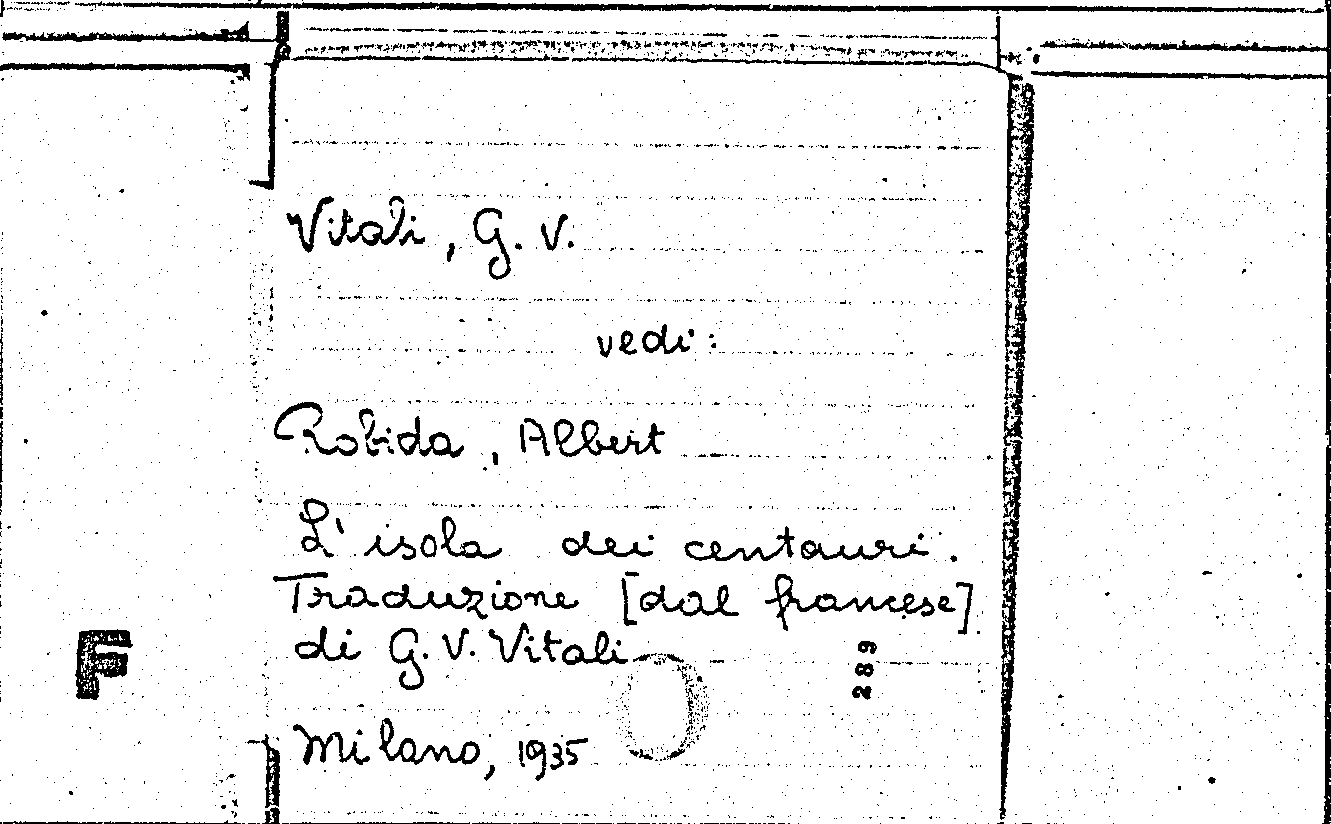 Vitali, G. V.
vedi:
Robida, Albert
L'isola dei centauri.
Traduzione [dal francese]
di G. V. Vitali
F
289
Milano, 1935